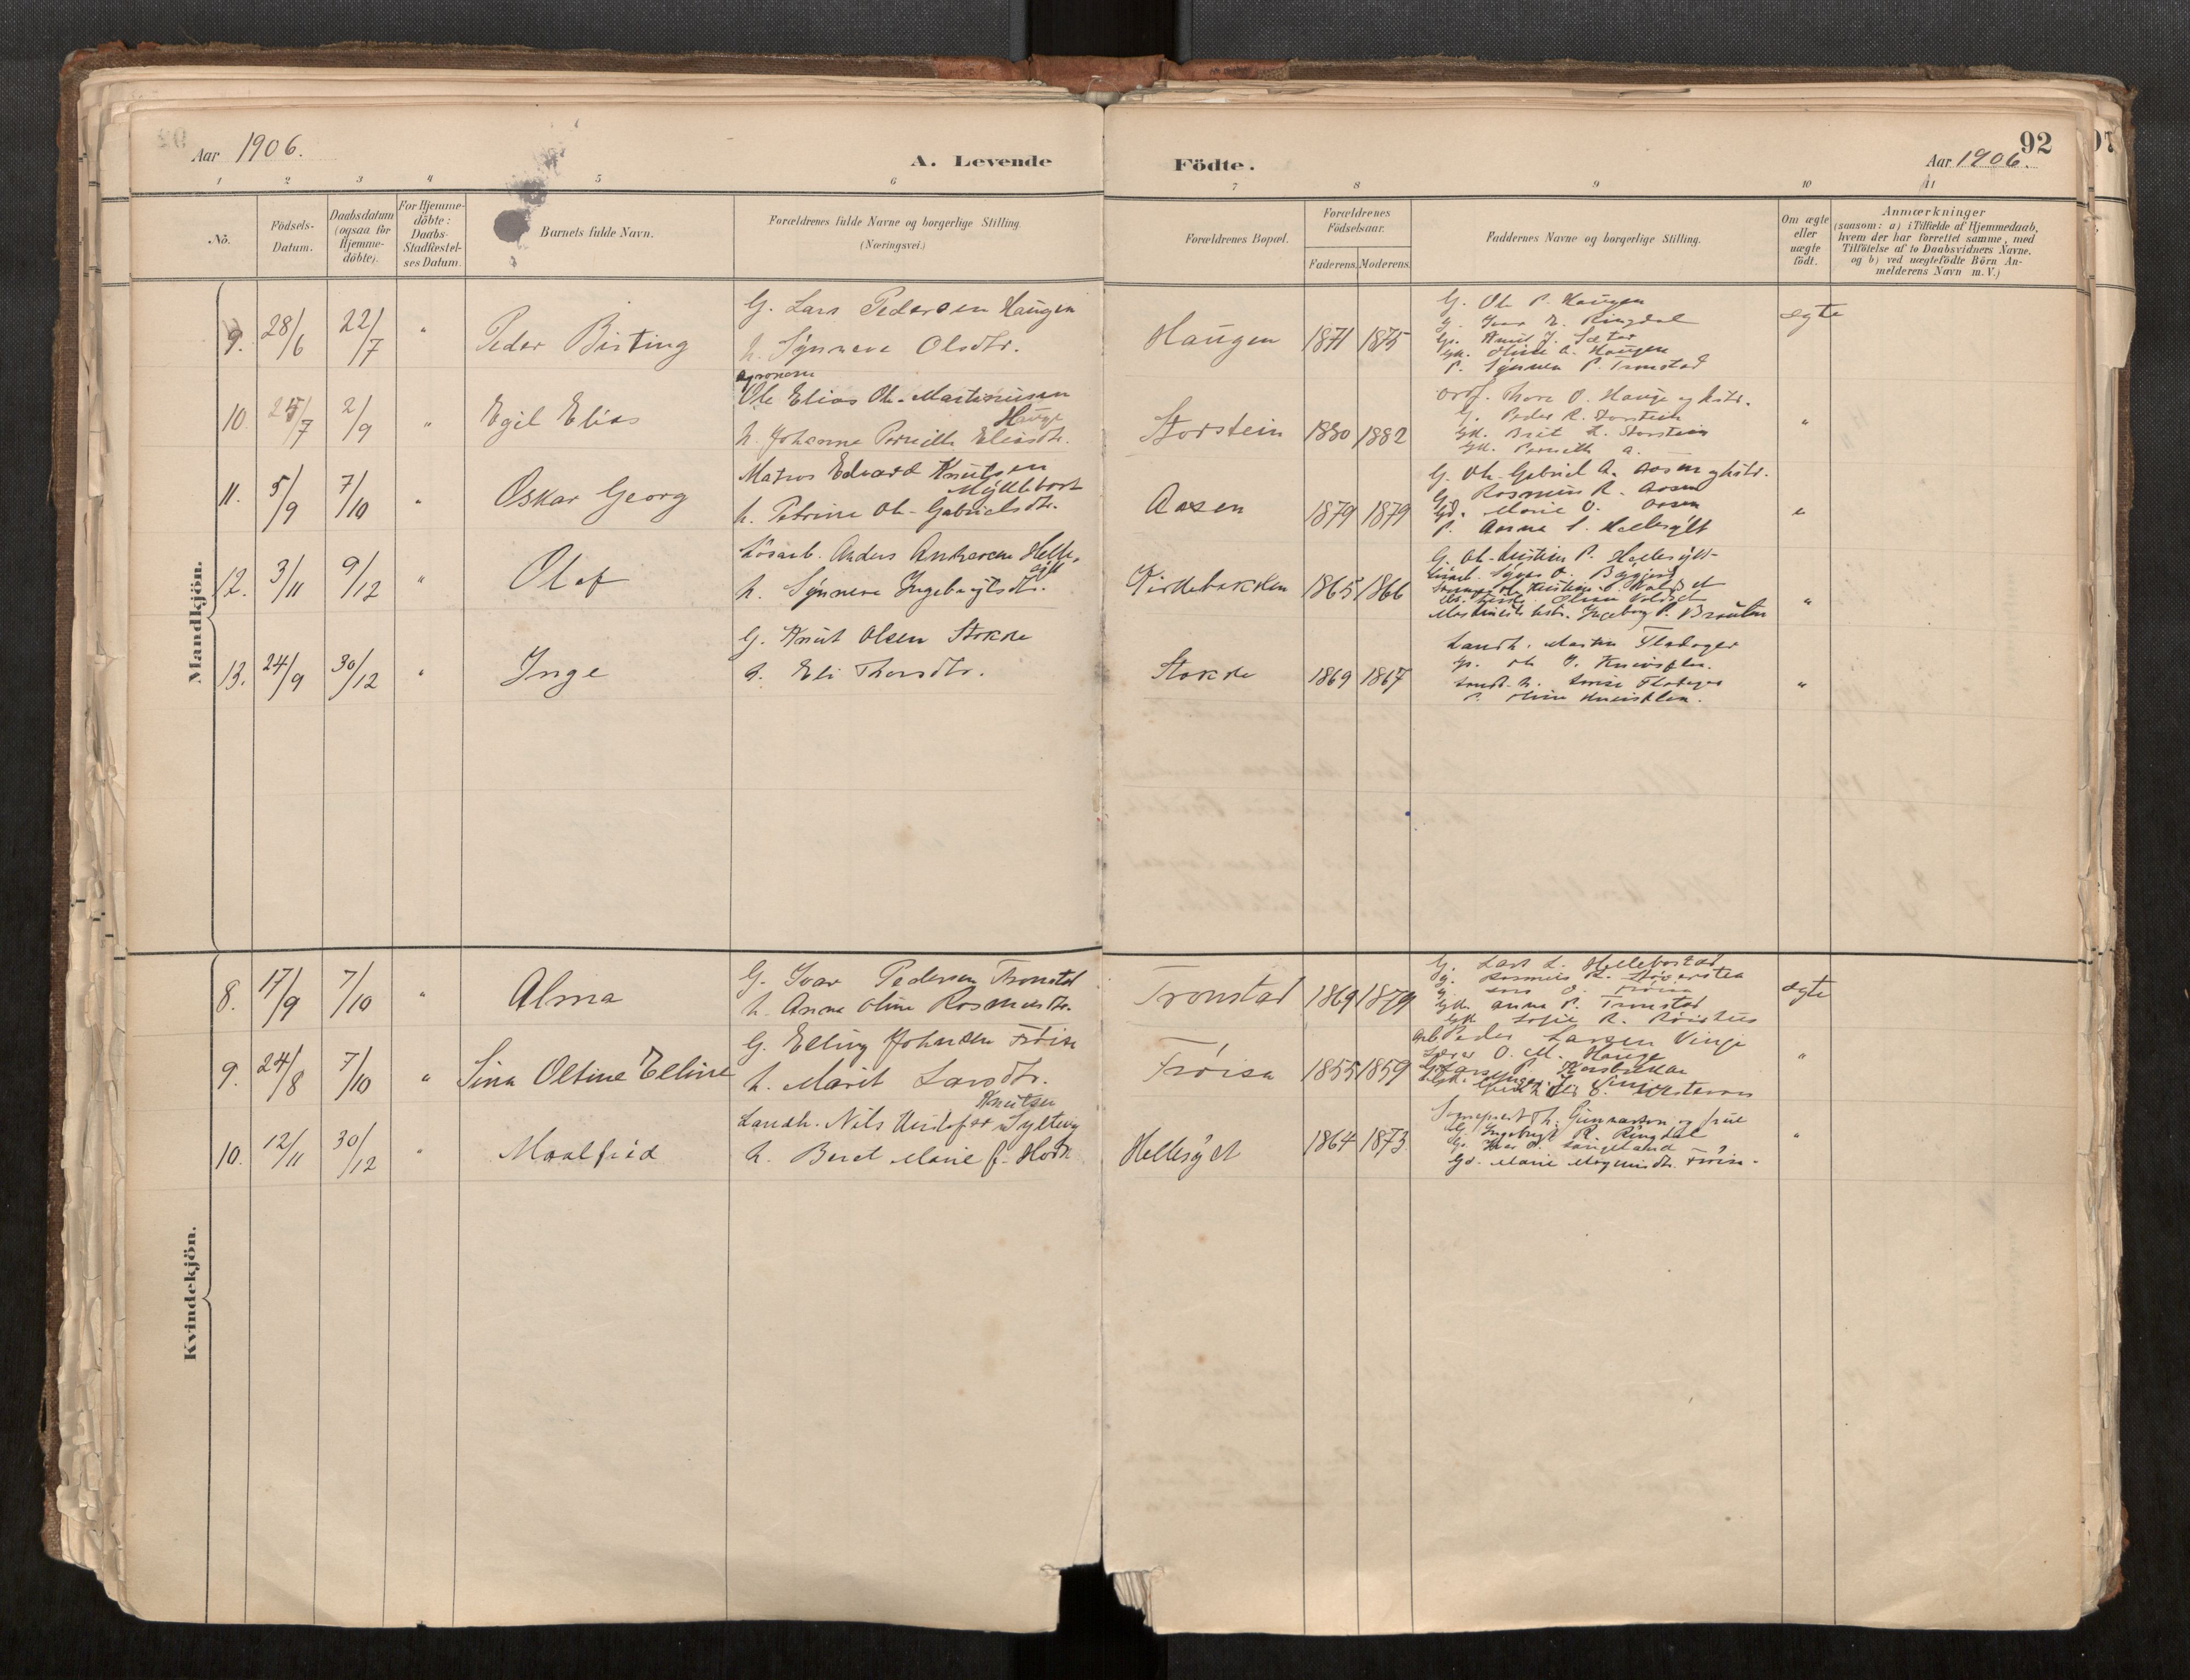 Aar 1906.
A. Levende
Födte.
92
Aar 1906.
1 2 3 4 5 6 7 8 9 10 11
No.
Födsels-
Datum.
Daabsdatum
(ogsaa for
Hjemme-
döbte).
For Hjemme-
döbte:
Daabs-
Stadfæstel-
ses Datum.
Barnets fulde Navn.
Forældrenes fulde Navne og borgerlige Stilling.
(Næringsvei.)
Forældrenes Bopæl.
Forældrenes
Födselsaar.
Faderens. Moderens.
Faddernes Navne og borgerlige Stilling.
Om ægte
eller
uægte
födt.
Anmærkninger
(saasom: a) i Tilfælde af Hjemmedaab,
hvem der har forrettet samme, med
Tilföielse af to Daabsvidners Navne.
og b) ved uægtefödte Börn An-
melderens Navn m.V.)
Mandkjön.
9. 28/6 22/7 " Peder Birting
G. Lars Pedersen Haugen
h. Synneve Olsdtr.
Haugen 1871 1875
G. Ole P. Haugen
G. Ivar E. Ringdal
Gs. Knut J. Sæter
Gk. Oline A. Haugen
P. Synneva P. Tronstad
ægte
10. 25/7 2/9 " Egil Elias
agronom
Ole Elias Ole-Martinusen
Hauge
h. Johanna Pernille Eliasdtr.
Storstein 1880 1882
Ordf. Thore O. Hauge og hstr.
G. Peder R. Storstein
Gk. Brit L. Storstein
Gk. Pernille A.
"
11. 5/9 7/10 " Oskar Georg
Matros Edvard Knutsen
Myklebost
h. Petrine Ole-Gabrielsdtr.
Aasen 1879 1879
G. Ole-Gabriel A. Aasen og hstr.
G. Rasmus R. Aasen
Gd. Marie O. Aasen
P. Anna L. Hellesylt
"
12. 3/11 9/12 " Olaf
Lösarb. Anders Andersen Helle-
sylt
h. Synneve Ingebrigtsdtr.
Kirkebakken 1865 1866
G. Ole-Kristian P. Hellesylt
Martinius hstr. Ingeborg P. Bråuten
"
13. 24/9 30/12 " Inge
G. Knut Olsen Stokke
h. Eli Thorsdtr.
Stokke 1869 1867
Landh. Martin Fladager
P. Oline
"
Kvindekjön.
8. 17/9 7/10 " Alma
G. Ivar Pedersen Tronstad
h. Anna Oline Rasmusdtr.
Tronstad 1869 1879
G. Lars L. Hellebostad
G. Rasmus R.
Gk. Anna P. Tronstad
Gk. Sofie R.
ægte
9. 24/8 7/10 " Sina Oltine Elline
G. Elling Johnsen Frøisa
h. Marit Larsdtr.
Frøisa 1855 1859
Arb. Peder Larsen Vinje
Lærer O. M. Hauge
"
10. 12/11 30/12 " Maalfrid
Knutsen
Landh. Nils Kristofer Syltevig
h. Berit Marie f. Hole
Hellesylt 1864 1873
Th. Gunnarson og frue
G. Ingebrigt R. Ringdal
G. Ivar O. Langeland
Gd. Marie Magnusdtr. Frøisa.
"